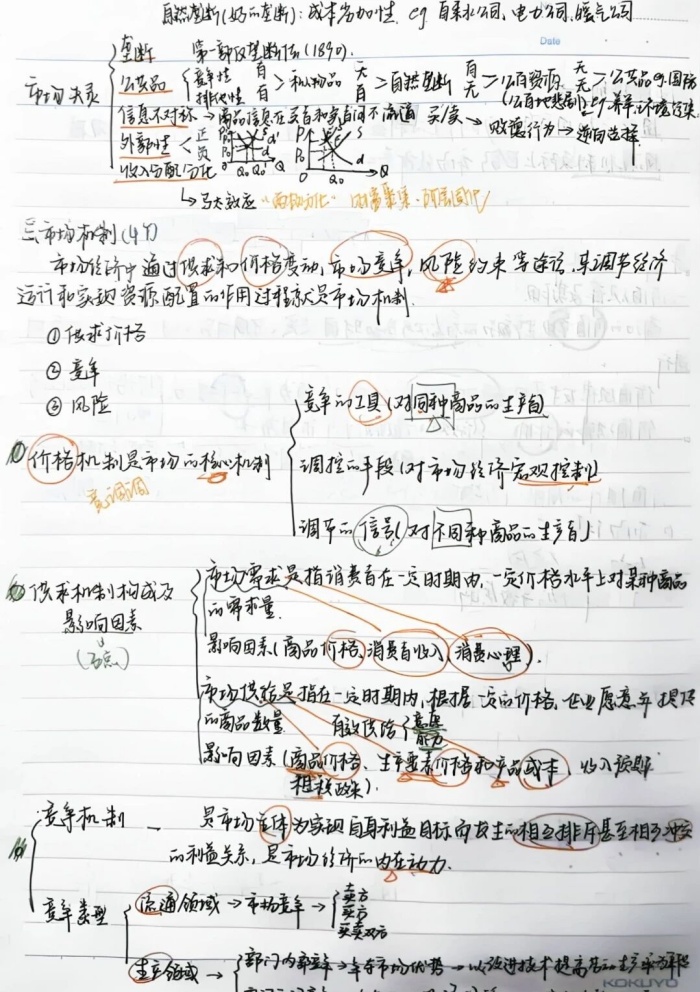 自然垄断(好的垄断):成本劣加性. eg 自来水公司、电力公司、暖气公司
Date
垄断 第一部反垄断法(1890).
市场失灵
公共品 竞争性 有 排他性 有 > 私人物品 无 有 > 自然垄断 有 无 > 公有资源 无 无 > 公共品eg.国防
(公有地悲剧)
信息不对称 → 商品信息在买者和卖者间不流通 买/卖 → 败德行为 → 逆向选择.
外部性 < 正 负
P P₀ O Q₀ Q d d' s
P P₀ O Q₀ Q s d
收入分配分化
↳ 马太效应 "两极分化"
三.市场机制(4个)
市场经济中通过供求和价格变动,市场竞争,风险约束等途径,来调节经济
运行和实现资源配置的作用过程就是市场机制.
① 供求价格
② 竞争
③ 风险
竞争的工具(对同种商品的生产者
价格机制是市场的核心机制
竞调调
调控的手段(对市场经济宏观控制)
调节的信号(对不同种商品的生产者)
供求机制构成及
影响因素
市场需求是指消费者在一定时期内,一定价格水平上对某种商品
的需求量.
影响因素(商品价格,消费者收入,消费心理).
市场供给是指在一定时期内,根据一定的价格,企业愿意并提供
的商品数量. 有效供给 { 意愿 能力
影响因素(商品价格、生产要素价格和产品成本,收入预期
租税政策).
竞争机制 — 是市场主体为实现自身利益目标而发生的相互排斥甚至相互冲突
的利益关系,是市场经济的内在动力.
竞争类型
流通领域 → 市场竞争 → { 卖方 买方 买卖双方
生产领域 → 部门内部竞争 → 争夺市场优势 → 以改进技术提高劳动生产率
KOKUYO